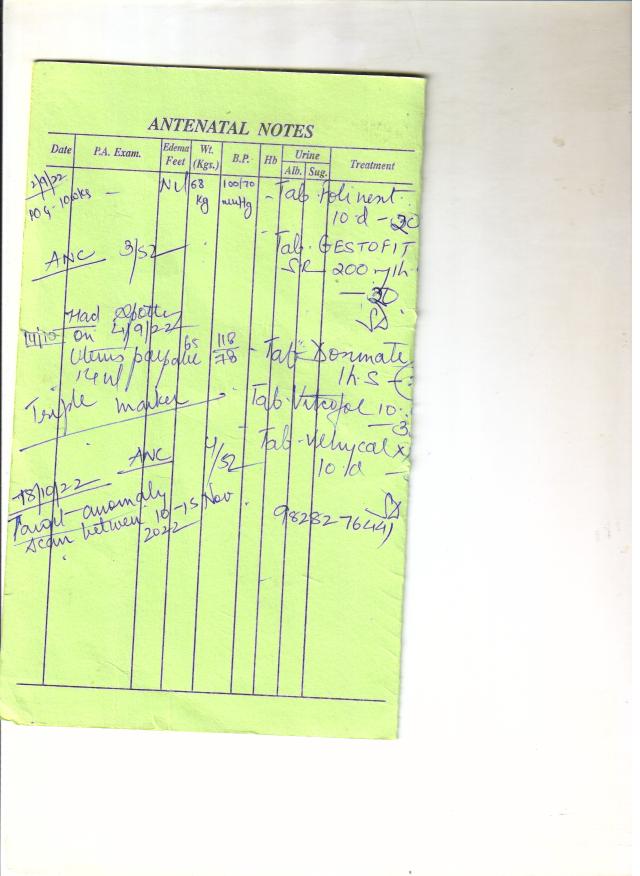 ANTENATAL NOTES
Date P.A. Exam. Edema Feet Wt. (Kgs.) B.P. Hb Urine Alb. Sug. Treatment
2/9/22 — Nil 68 Kg 100/70 mmHg - Tab. Folinext
POG-10wks 10d - 30
Tab. GESTOFIT
ANC 3/52 SR 200 m
- 30
Had
on 4/9/22
Uterus palpable 65 118/78 - Tab Doxinate
1hS
Triple marker Tab. 10
Tab.
ANC 4/52 10d
18/10/22
Target anomaly
scan between 10-15 Nov
2022
9828276441